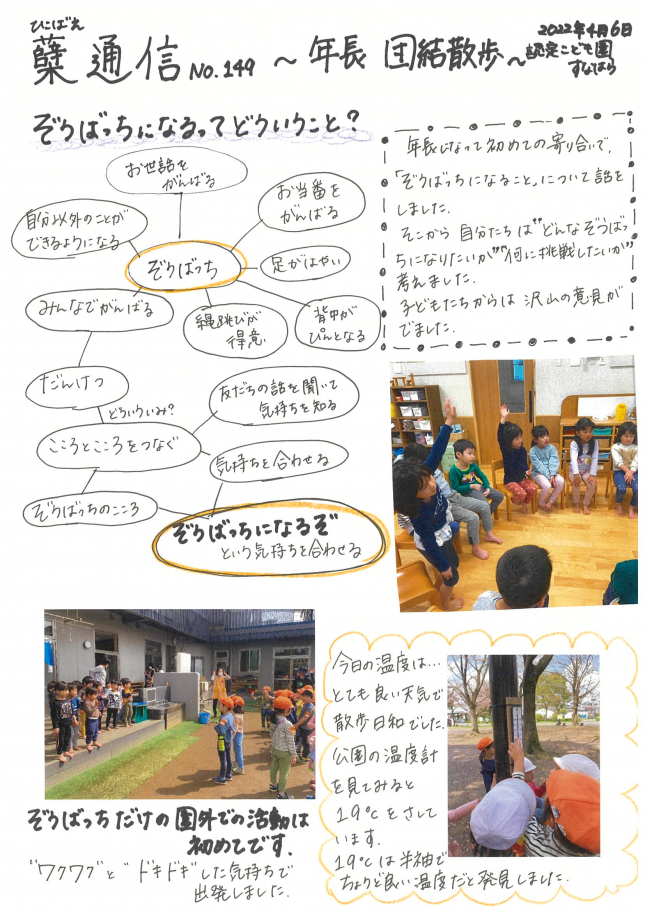 ひこばえ
蘖通信 No.149 〜年長 団結散歩〜
2022年4月6日
認定こども園
すなはら
ぞうばっちになるってどういうこと?
お世話を
がんばる
お当番を
がんばる
自分以外のことが
できるようになる
ぞうばっち
足がはやい
みんなでがんばる
縄跳びが
得意
背中が
ぴんとなる
だんけつ
どういういみ?
友だちの話を聞いて
気持ちを知る
こころとこころをつなぐ
気持ちを合わせる
ぞうばっちのこころ
ぞうばっちになるぞ
という気持ちを合わせる
年長になって初めての寄り合いで、
「ぞうばっちになること」について話を
しました。
そこから自分たちは"どんなぞうばっ
ちになりたいか""何に挑戦したいか"
考えました。
子どもたちからは沢山の意見が
でました。
ぞうばっちだけの園外での活動は
初めてです。
"ワクワク"と"ドキドキ"した気持ちで
出発しました。
今日の温度は…
とても良い天気で
散歩日和でした。
公園の温度計
を見てみると
19℃をさして
います。
19℃は半袖で
ちょうど良い温度だと発見しました。